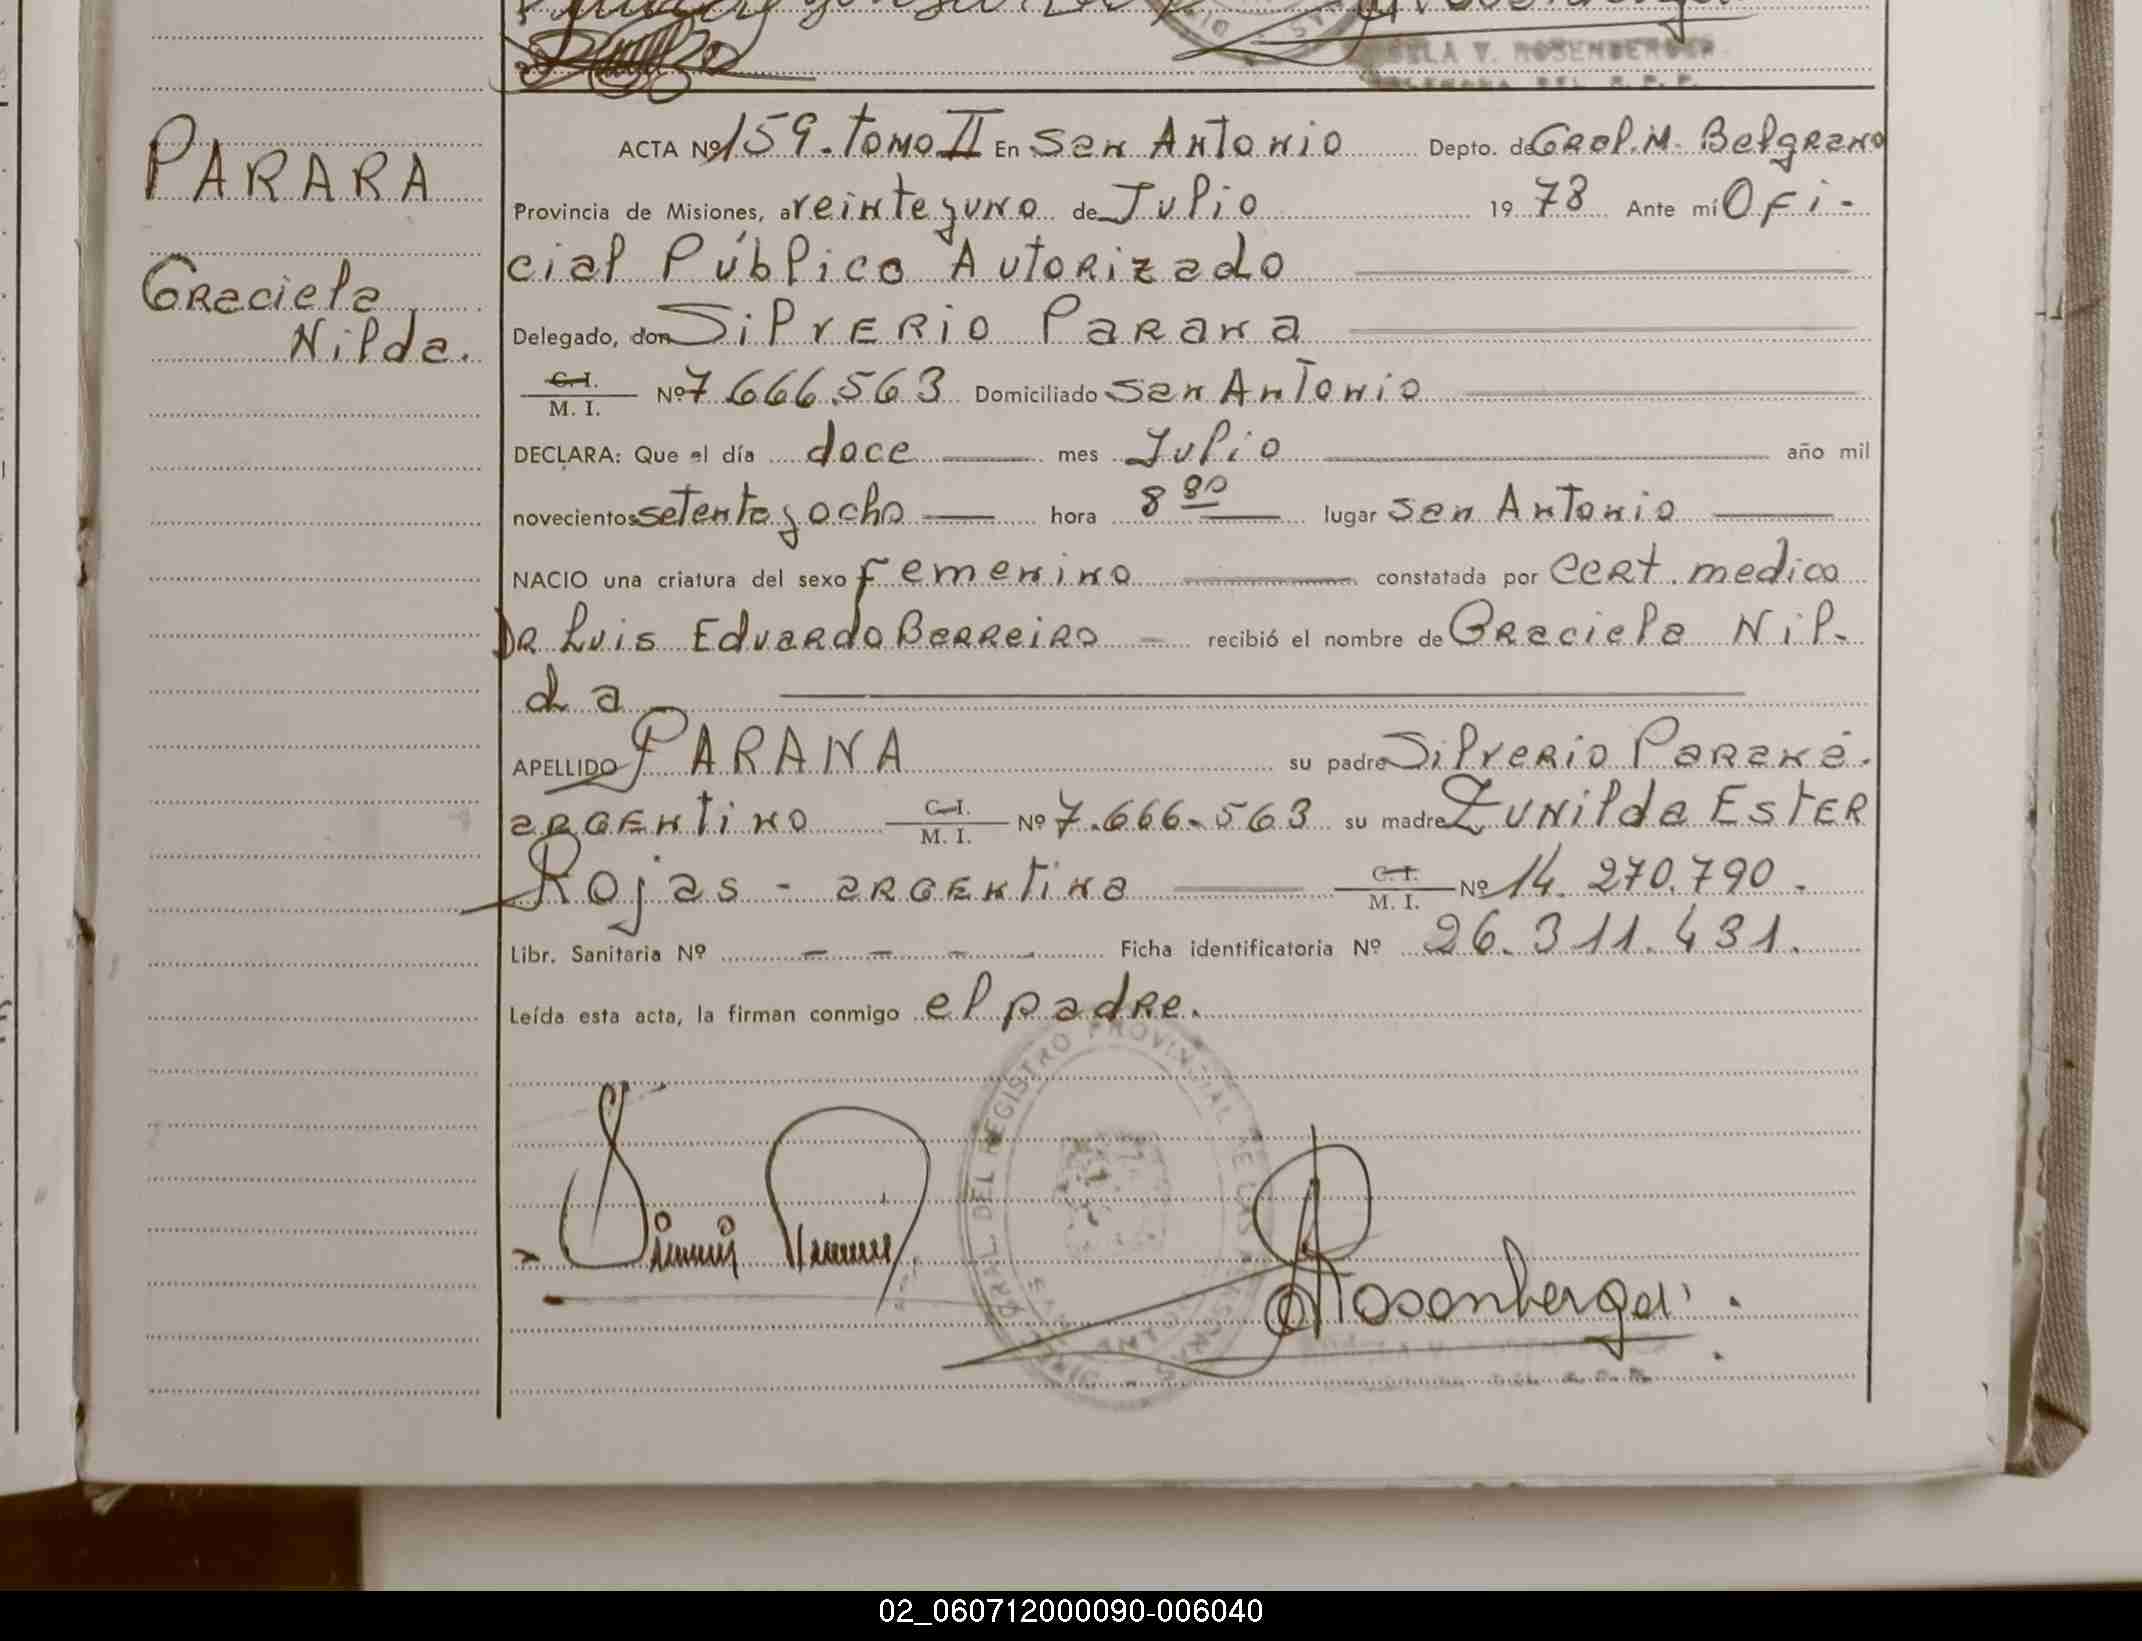 ELA V. ROSENBERGER
PARARA
Graciela
Nilda.
ACTA Nº 159. Tomo II En San Antonio Depto. de Gral. M. Belgrano
Provincia de Misiones, a veinteyuno de Julio 19 78 Ante mí Ofi-
cial Público Autorizado
Delegado, don Silverio Parana
C. I.
M. I. Nº 7.666.563 Domiciliado San Antonio
DECLARA: Que el día doce mes Julio año mil
novecientos setenta y ocho hora 8 30 lugar San Antonio
NACIO una criatura del sexo femenino constatada por Cert. medico
Dr Luis Eduardo Barreiro - recibió el nombre de Graciela Nil-
da
APELLIDO PARANA su padre Silverio Paraná.
argentino C. I. M. I. Nº 7.666.563 su madre Zunilda Ester
Rojas - argentina C. I. M. I. Nº 14.270.790.
Libr. Sanitaria Nº - - - - Ficha identificatoria Nº 26.311.431.
Leída esta acta, la firman conmigo el padre.
DEL REGISTRO PROVINCIAL DE LAS PERSONAS
Rosenberger
02_060712000090-006040